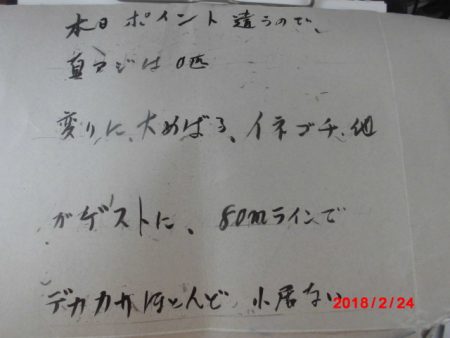 本日 ポイント違うので、
真アジは 0匹
変りに、大めばる、イネゴチ、他
がゲストに、80mラインで
デカカサほとんど 小居ない
2018/2/24